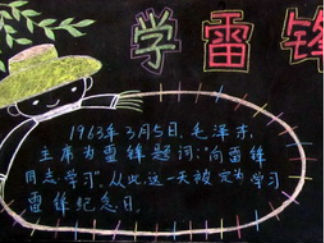 学雷锋
1963年3月5日,毛泽东
主席为雷锋题词:"向雷锋
同志学习"。从此,这一天被定为学习
雷锋纪念日。